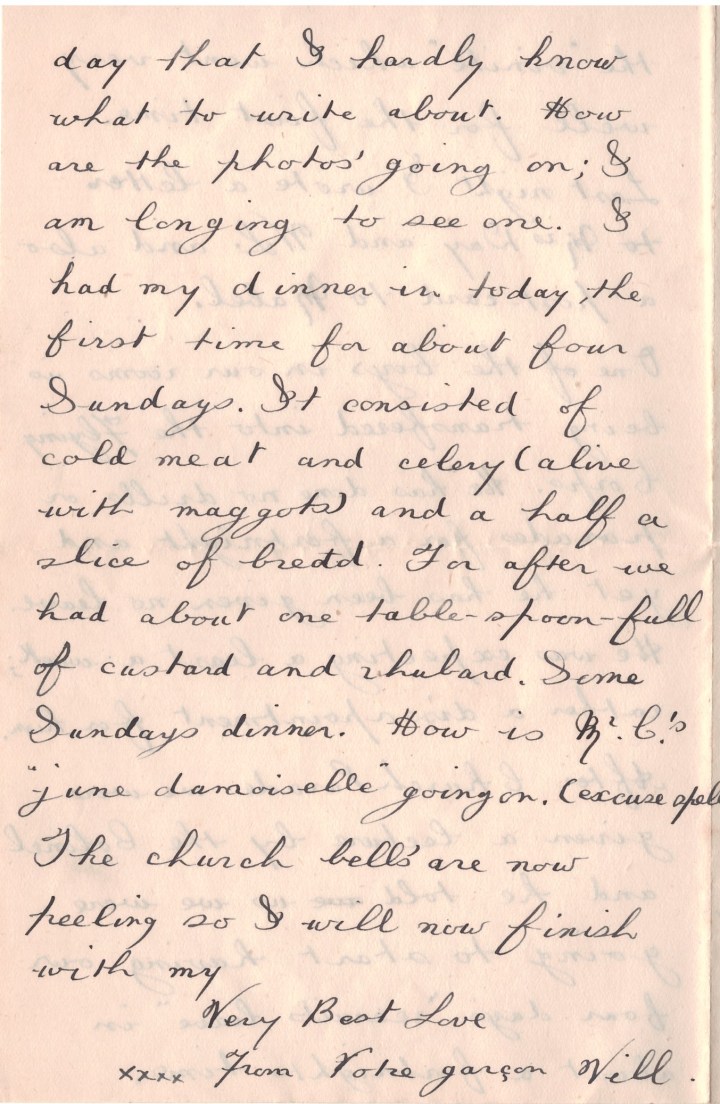 day that I hardly know
what to write about. How
are the photos' going on; I
am longing to see one. I
had my dinner in today, the
first time for about four
Sundays. It consisted of
cold meat and celery (alive
with maggots) and a half a
slice of bread. For after we
had about one table-spoon-full
of custard and rhubard. Some
Sundays dinner. How is Mr. C.'s
"june damoiselle" going on. (excuse spell
The church bells' are now
peeling so I will now finish
with my
Very Best Love
xxxx From Votre garçon Will.